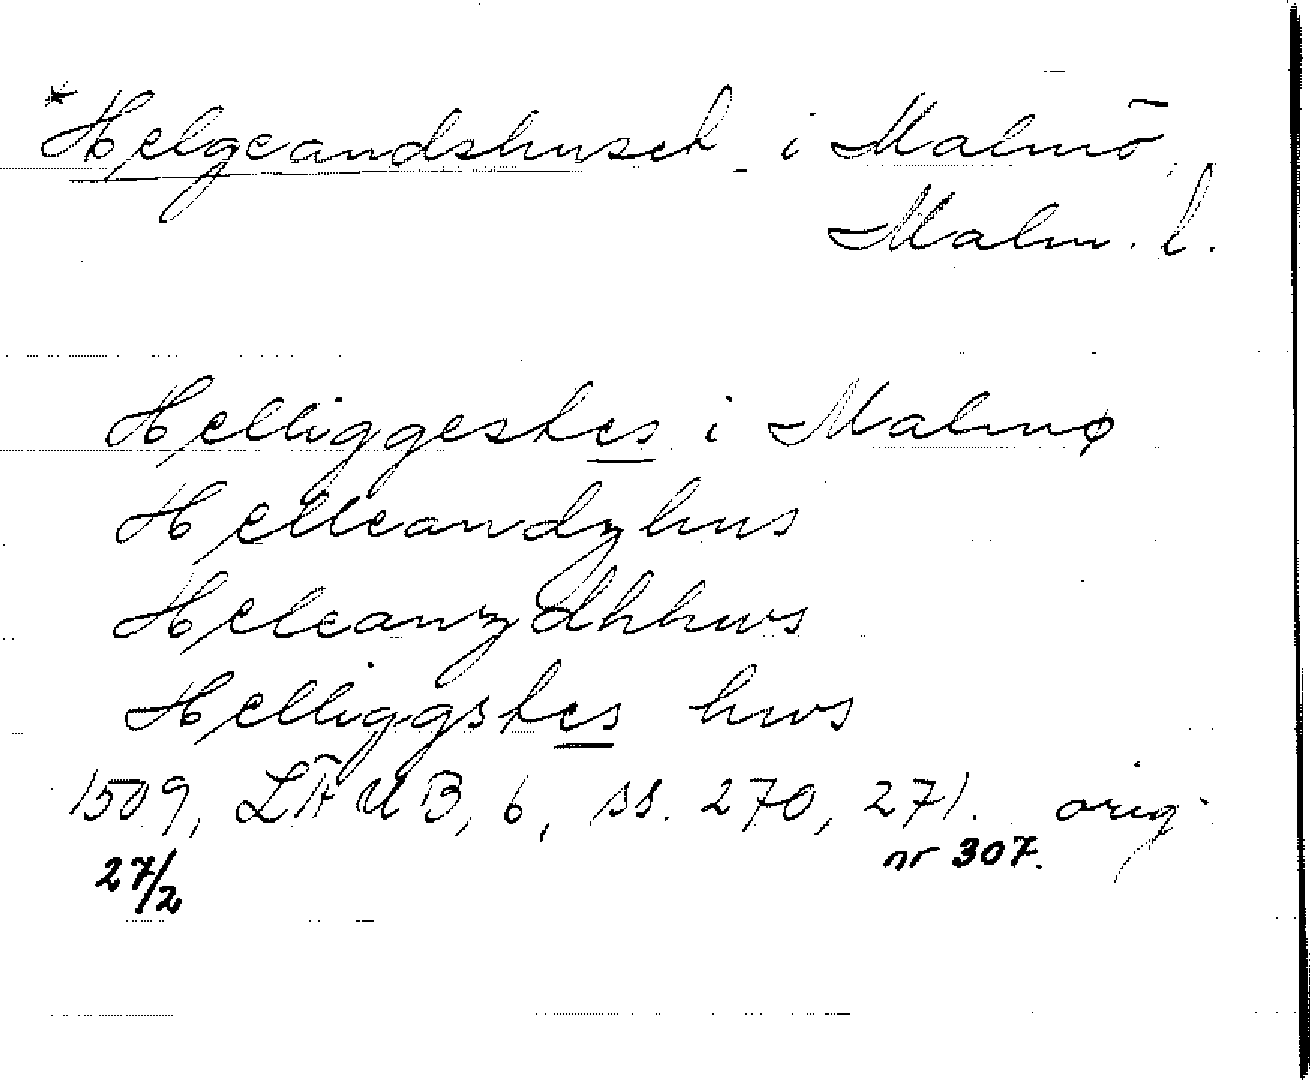 *Helgeandshuset i Malmö,
Malm. l.
Helliggestes i Malmø
Helleandzhus
Heleanzdhhws
Helliggstes hws
1509, LÄUB, 6, ss. 270, 271. orig.
27/2 nr 307.